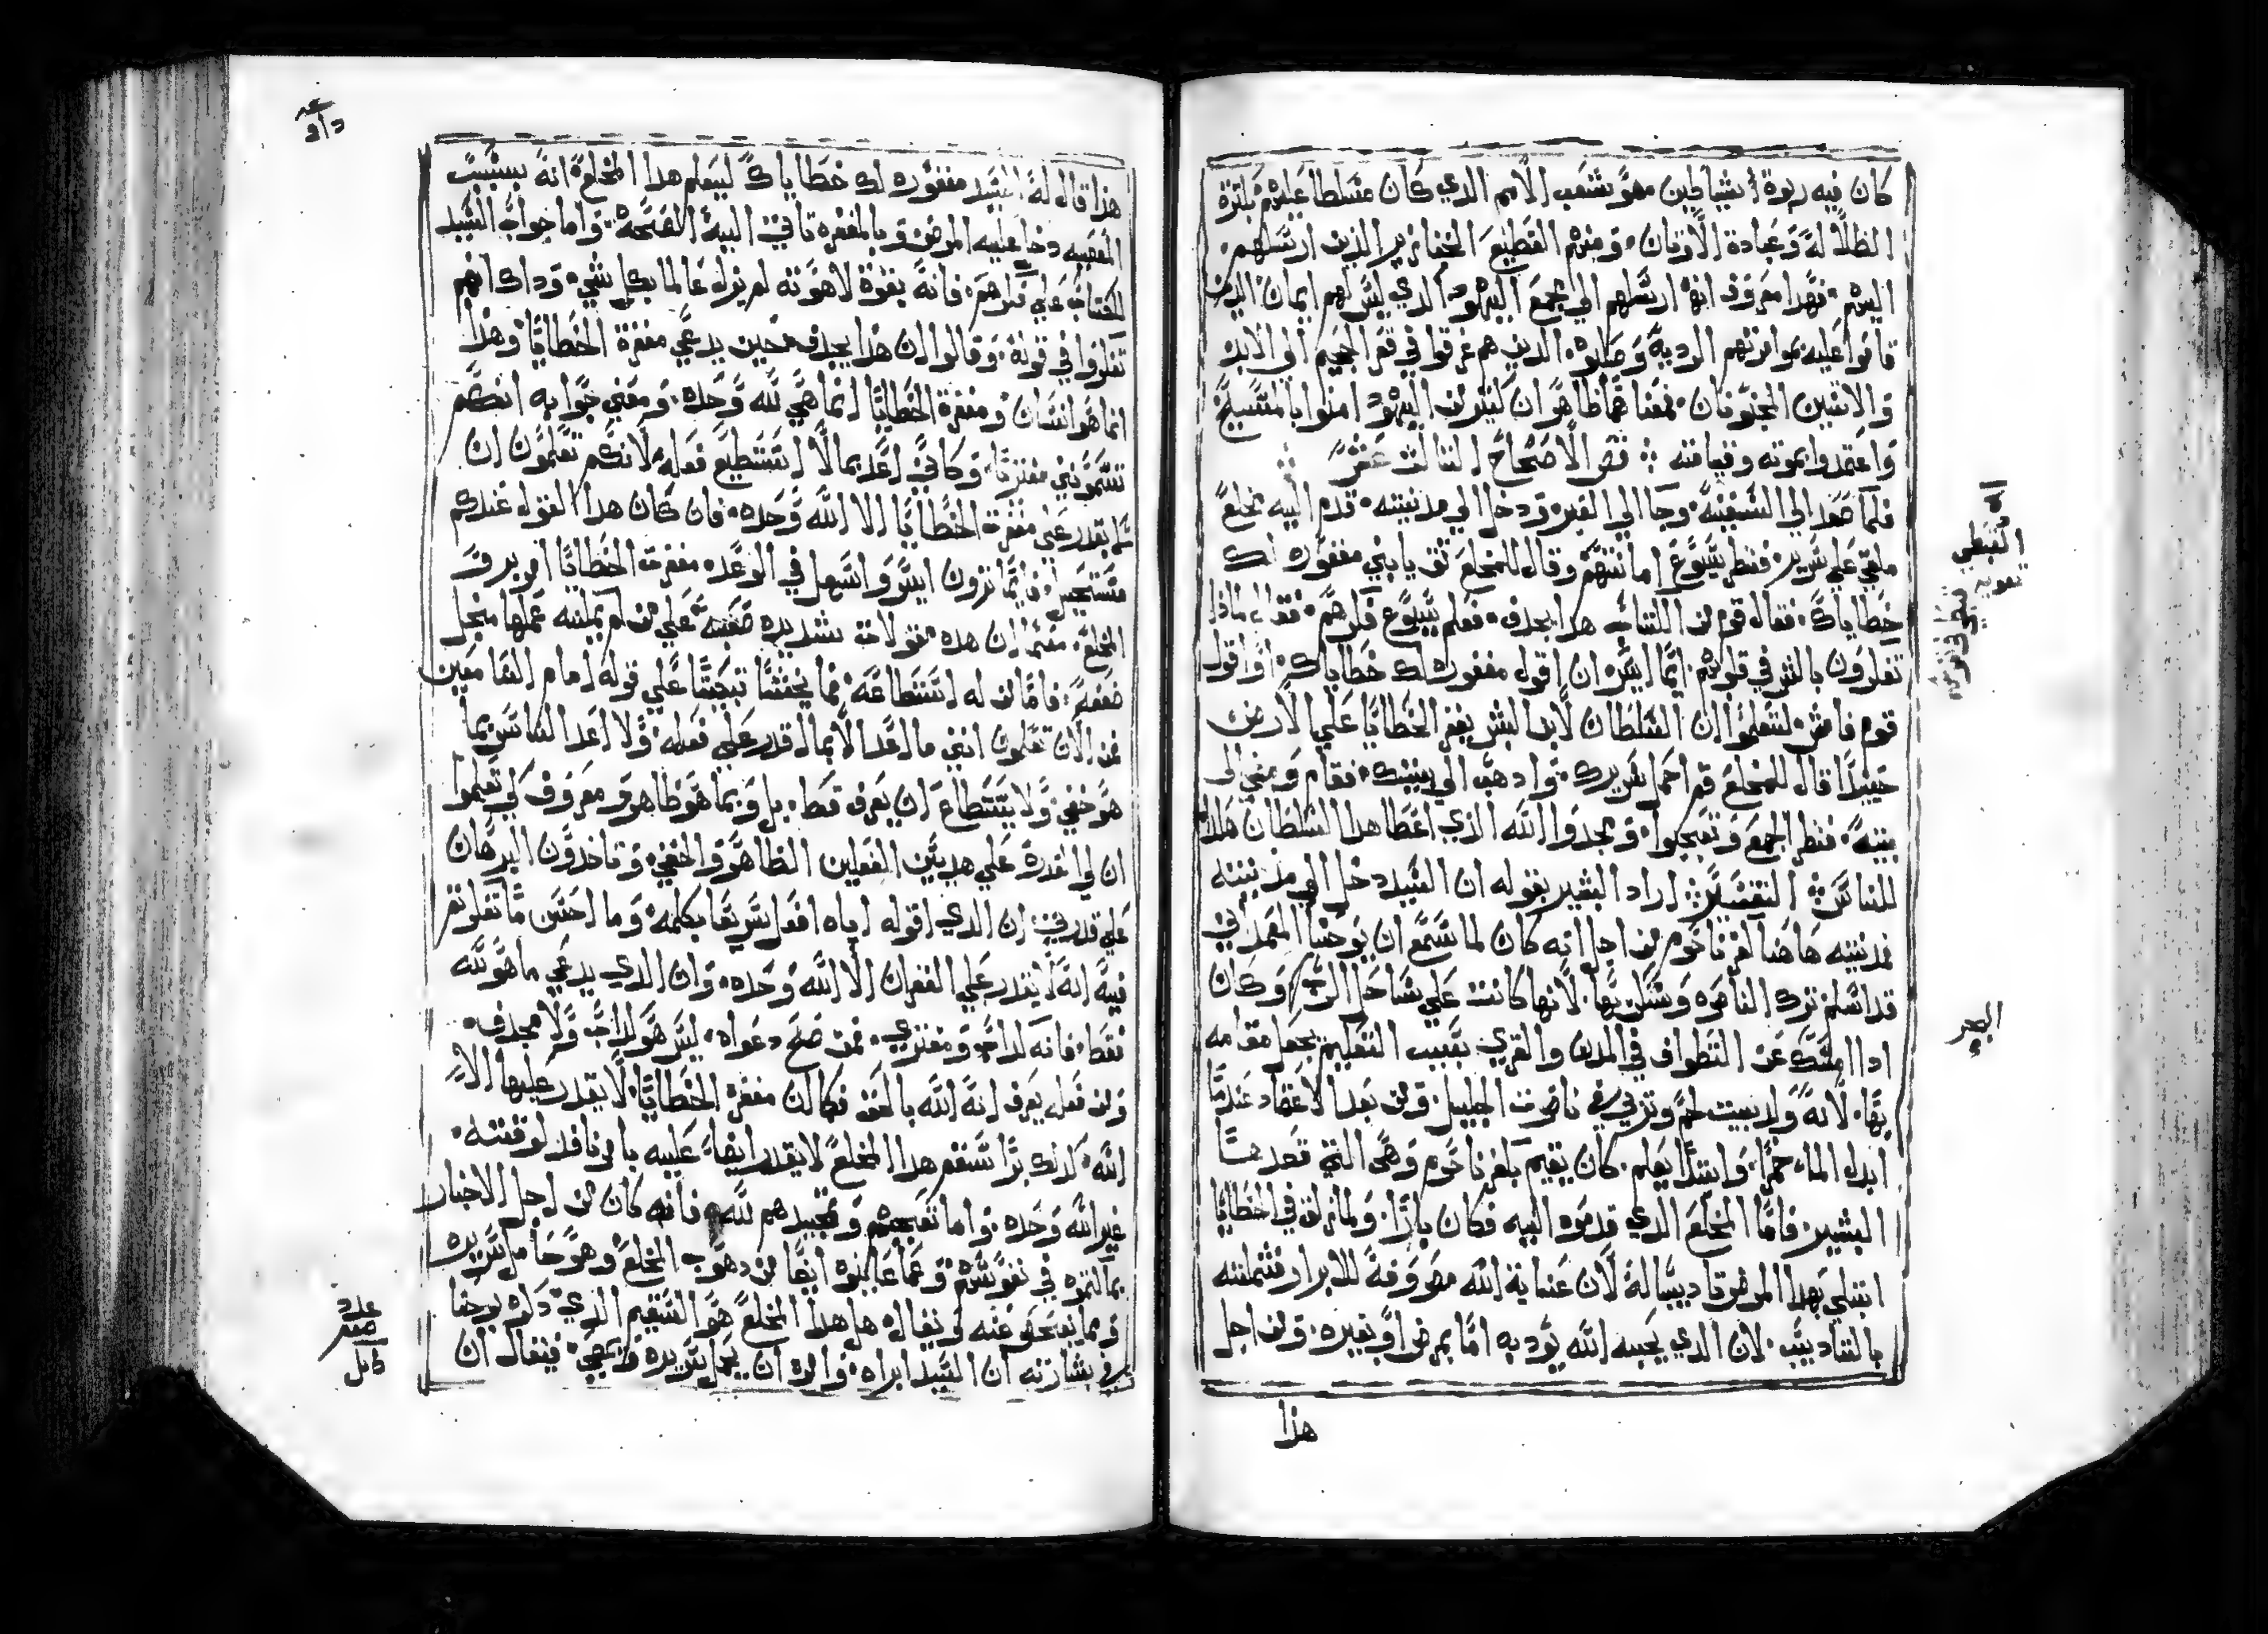 كان فيه ربوة شياطين فهو شعب الامم الدي كان متسلطا عليهم بكترة
الظلاله وعبادة الاوتان ومنهم القطيع الخنازير الذين ارسلهم
اليهم فهدا معروف انه ارسلهم الي مجمع اليهود الدي ليس لهم ايمان الدين
قاموا عليه بموامرتهم الرديه وصلبوه الدين هم غرقوا في قعر الجحيم الي الابد
والاتنين المجنونان فمعناهما ظاهر ان كتير من اليهود امنوا بالمسيح
واعتمدوا بموته وقيامته فص الاصحاح التالت عشر
فلما صعد الي السفينة وجا الي العبر ودخل الي مدينته قدم اليه مخلع
ملقي علي سرير فنظر يسوع امانتهم وقال للمخلع تق يا بني مغفوره لك
خطاياك فقال قوم من الكتاب هدا يجدف فعلم يسوع فكرهم فقال ماذا
تفكرون بالشر في قلوبكم ايما ايسر ان اقول مغفوره لك خطاياك او اقول
قوم فامش لتعلموا ان السلطان لابن البشر يغفر الخطايا علي الارض
حينيدا قال للمخلع قم احمل سريرك وادهب الي بيتك فقام ومضي الي
بيته فنظر الجمع وتعجبوا ومجدوا الله الذي اعطا هدا السلطان هكدا
للناس التفسير اراد البشير بقوله ان السيد دخل الي مدينته
فمدينته هاهنا كفرناحوم من اجل انه كان لما سمع ان يوحنا المعمداني
قد اسلم ترك الناصره وسكن بها لانها كانت علي شاحل البحر وكان
ادا امسك عن التطواف في المدن والقري بسبب التعليم يجعل مقامه
بها لانه ولد ببيت لحم وتربي في ناصرت الجليل ومن بعد الاعتماد عندما
ابدل الما خمرا وابتدا يعلم كان يقيم بكفرناحوم وهي التي قصدها
البشير فاما المخلع الدي قدموه اليه فكان بارا ولما زلق في الخطايا
ابتلي بهدا المرض تاديبا له لان عناية الله مصروفة للابرار فشملته
بالتاديب لان الدي يحبه الله يودبه اما بمرض او بغيره ومن اجل
هذا
القبطي
البحر
هذا قال له السيد مغفوره لك خطاياك ليعلم هدا المخلع انه بسبب
المعصيه دخل عليه المرض وبالمغفره تاتي اليه الصحة واما جواب السيد
للكتاب علي فكرهم فانه بقوة لاهوته لم يزل عالما بكل شي وداك انهم
تفكروا في قوله وقالوا ان هذا يجدف حين يدعي مغفرة الخطايا وهذا
انما هو انسان ومغفرة الخطايا انما هي لله وحده ومعني جوابه انكم
تسموني مفتريا وكاني اعد بما لا استطيع فعله لانكم تعلمون ان
لم يقدر علي مغفرة الخطايا الا الله وحده فان كان هدا القول عندكم
مستحيل فايما ترون ايسر واسهل في الوعده مغفرت الخطايا ام بروو
المخلع فنعم ان هده مقولات شديده صعبه علي من لم يمكنه عملها من اجل
ضعفه فاما من له استطاعه فما يخشا تبكيتا علي قوله امام السامعين
فمن الان تعلمون انني ما اعد الا بما اقدر علي فعله ولا اعد الناس بما
هو خفي ولا يستطاع ان يعرف قط بل وبما هو ظاهر ومعروف لكي تعلموا
ان لي القدرة علي هديين الفعلين الظاهر والخفي وتاخدون البرهان
علي قدرتي ان الدي اقوله اياه افعل سريعا بكلمه وما احسن ما تفكرتم
فيه انه لا يقدر علي الغفران الا الله وحده وان الدي يدعي ما هو لله
فقط فانه كداب ومفتري فمن صح دعواه ليس هو كداب ولا مجدف
ومن فعله يعرف انه الله بالحق فكما ان مغفرة الخطايا لا يقدر عليها الا
الله كدلك برا سقم هدا المخلع لا يقدر ايضا عليه بامر نافد لوقته
غير الله وحده واما تعجبهم وتمجيدهم لله فانه كان من اجل الاخبار
بما اكتموه في نفوسهم وعما عاينوه ايضا من دهوب المخلع وهو حامل سريره
ومما يعتلو عنه ويقال هل هدا المخلع هو السقيم الدي دكره يوحنا
في بشارته ان السيد ابراه وامره ان يحمل سريره ويمضي فيقال ان
عدد
كامل